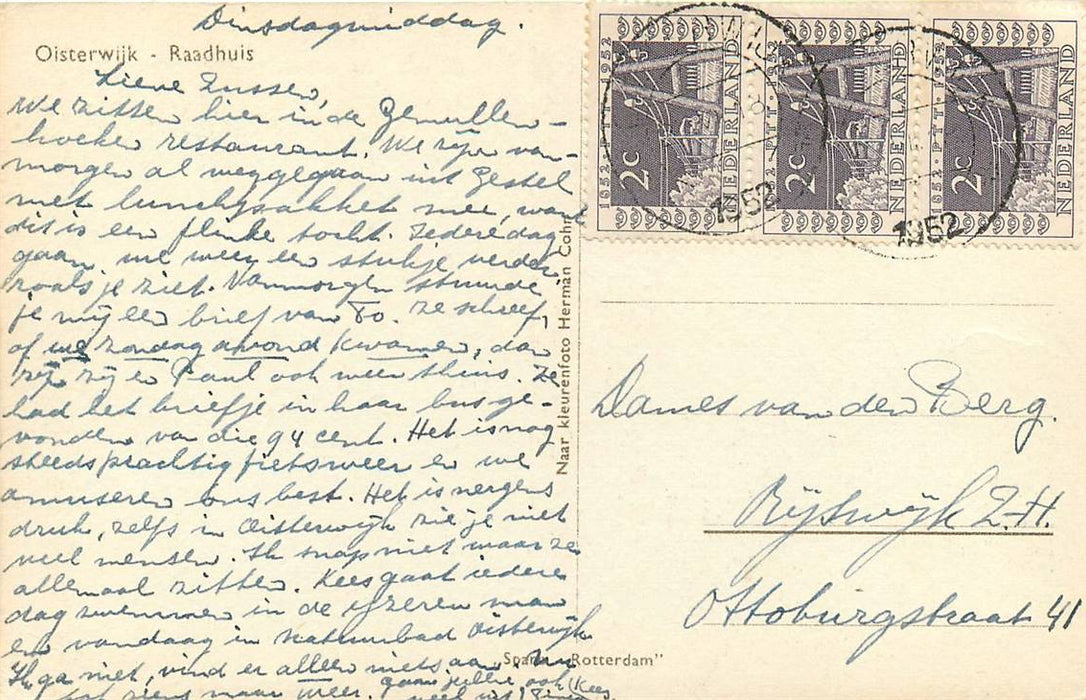 Dinsdagmiddag.
Oisterwijk - Raadhuis
Lieve Zussen,
We zitten hier in de Gemullen-
hoeker restaurant. We zijn van-
morgen al weggegaan uit Gestel
met lunchpakket mee, want
dit is een flinke tocht. Iedere dag
gaan we weer een stukje verder
zoals je ziet. Vanmorgen stuurde
je mij een brief van To. Ze schreef,
of we zondagavond kwamen, dan
zijn zij en Paul ook weer thuis. Ze
had het briefje in haar bus ge-
vonden van die 94 cent. Het is nog
steeds prachtig fietsweer en we
amuseren ons best. Het is nergens
druk, zelfs in Oisterwijk zie je niet
veel mensen. Ik snap niet waar ze
allemaal zitten. Kees gaat iedere
dag zwemmen in de ijzeren man
en vandaag in natuurbad Oisterwijk
Ik ga niet, vind er alleen niets aan,
tot ziens maar weer.
gaan jullie ook (Kees
veel
Naar kleurenfoto Herman Cohn
"Rotterdam"
1852 · PTT · 1952
2c
NEDERLAND
1852 · PTT · 1952
2c
NEDERLAND
1852 · PTT · 1952
2c
NEDERLAND
1952
1952
Dames van den Berg.
Rijswijk Z-H.
Ottoburgstraat 41